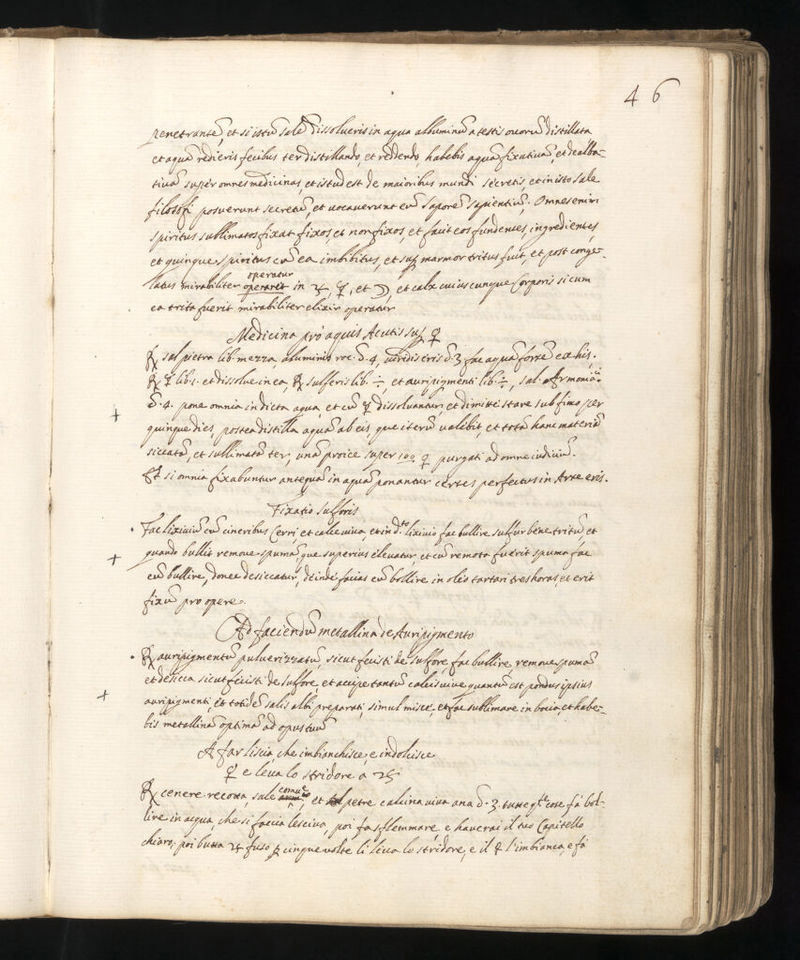 46
penetrantē, et si istū salē dissolueris in aqua albuminū a testis ovorū distillata
et aquā redieris fecibus ter distillando, et reddendo habebis aquā fixativā, et dealba-
tivā super omnes medicinas, et istud est de maioribus mundi secretis, et in isto sale
filosofi posuerunt secretū, et vocaverunt eū saporē sapientiū. Omnes enim
spiritus sublimatos fixat fixos, et non fixos, et facit eos fundentes, ingredientes
et quinque spiritus cū ea imbibitus, et sup marmor tritus fuit, et post conge-
latus mirabiliter operatur in ♃, ♀, et ☽, et calx cuiuscunque Corporis si cum
ea trita fuerit mirabiliter elixir operatur
Medicina pro aquis Acutis sup ♀
℞ sal pietra lib. mezza, aluminis roc. 4, viridis eris 3 fac aquā fortē ex his.
℞ ☿ lib. 1. et dissolve in ea, ℞ sulferis lib. ÷, et auripigmenti lib. ÷, sal. Armoniaci
4. pone omnia in dicta aqua, et cū ☿ dissolvantur, et dimitte stare sub fimo per
quinque dies, postea distilla aquā ab eis, que iterū valebit et totā hanc materiā
siccatā, et sullimatā ter, unā proice super 100 ♀ purgati ad omne iudiciū.
Et si omnia fixabuntur antequā in aquā ponantur certes perfectus in Arte eris.
Fixatio sulforis
Fac lixiviū cū cineribus Cerri, et calce viva, et in d.to lixivio fac bullire sulfur bene tritū, et
quando bullit remove spumā, que superius elevatur, et cū remota fuerit spuma fac
eū bullire, donec desiccatur, deinde facias eū bollire in oleo tartari tres horas et erit
fixū pro opere.
Ad faciendū metallina de Auripigmento
℞ auripigmentū pulverizzatū, sicut fecisti de sulfore, fac bullire, remove spumā
et desicca sicut fecisti de sulfore, et accipe tantū calcis vive quantū est pondus ipsius
auripigmenti, et totidē salis albi preparati, simul misce, et fac sullimare in bocia, et habe-
bis metallinā optimā ad opus tuū
A far liscia, che imbianchisce, e indolcisce
♀ e leva lo stridore a ♃
℞ cenere recotta, sale comune, et sal petre calcina viva ana 3. tutte q.te cose fà bol-
lire in acqua, che si faccia lescìva, poi fa sflemmare, e haverai il tuo Capitello
chiaro, poi butta ♃ fuso p cinque volte li leva lo stridore, e il ♀ l'imbianca, e fà